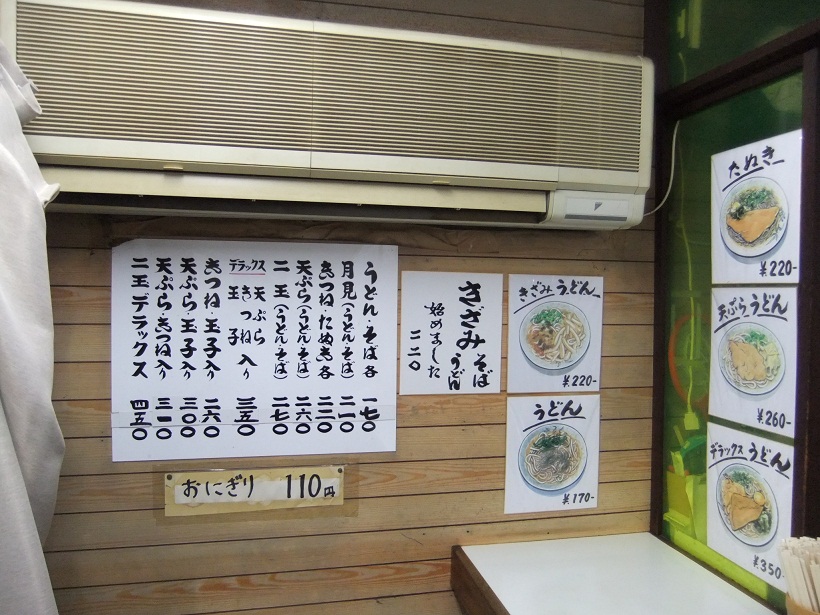 うどん・そば各 一七〇
月見(うどん・そば) 二一〇
きつね・たぬき各 二二〇
天ぷら(うどん・そば) 二六〇
二玉(うどん・そば) 二七〇
デラックス
天ぷら
きつね入り 三五〇
玉子
きつね・玉子入り 二六〇
天ぷら・玉子入り 三〇〇
天ぷら・きつね入り 三一〇
二玉デラックス 四五〇
おにぎり 110円
きざみそば
うどん
始めました
二二〇
きざみうどん
¥220-
うどん
¥170-
たぬき
¥220-
天ぷらうどん
¥260-
デラックスうどん
¥350-